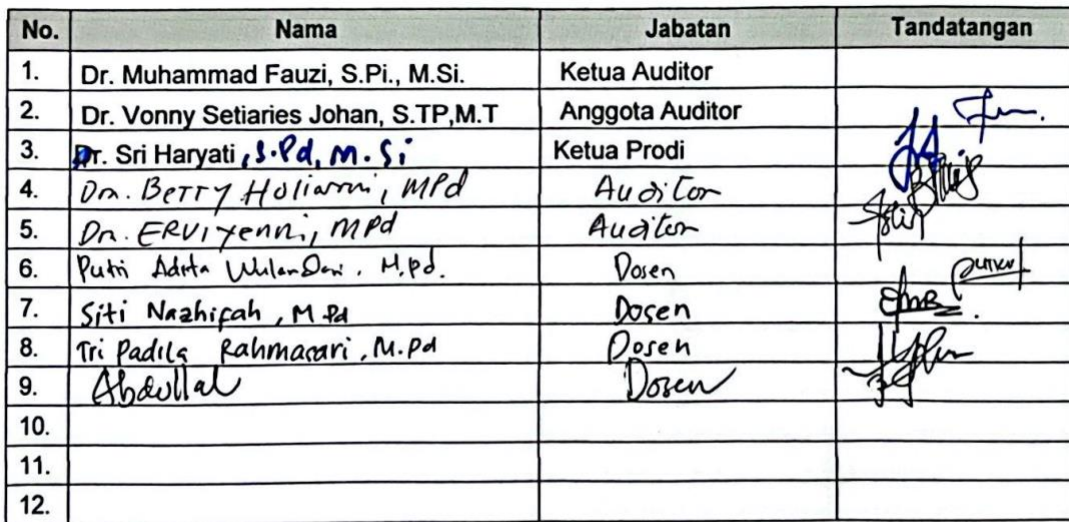 No. Nama Jabatan Tandatangan
1. Dr. Muhammad Fauzi, S.Pi., M.Si. Ketua Auditor
2. Dr. Vonny Setiaries Johan, S.TP,M.T Anggota Auditor
3. Dr. Sri Haryati, S.Pd, M.Si Ketua Prodi
4. Dra. BERRY Holiarni, MPd Auditor
5. Dra. ERVIyenni, MPd Auditor
6. Putri Adita Wulandari, M.Pd. Dosen
7. Siti Nazhifah, M.Pd Dosen
8. Tri Padila Rahmasari, M.Pd Dosen
9. Abdullah Dosen
10.
11.
12.